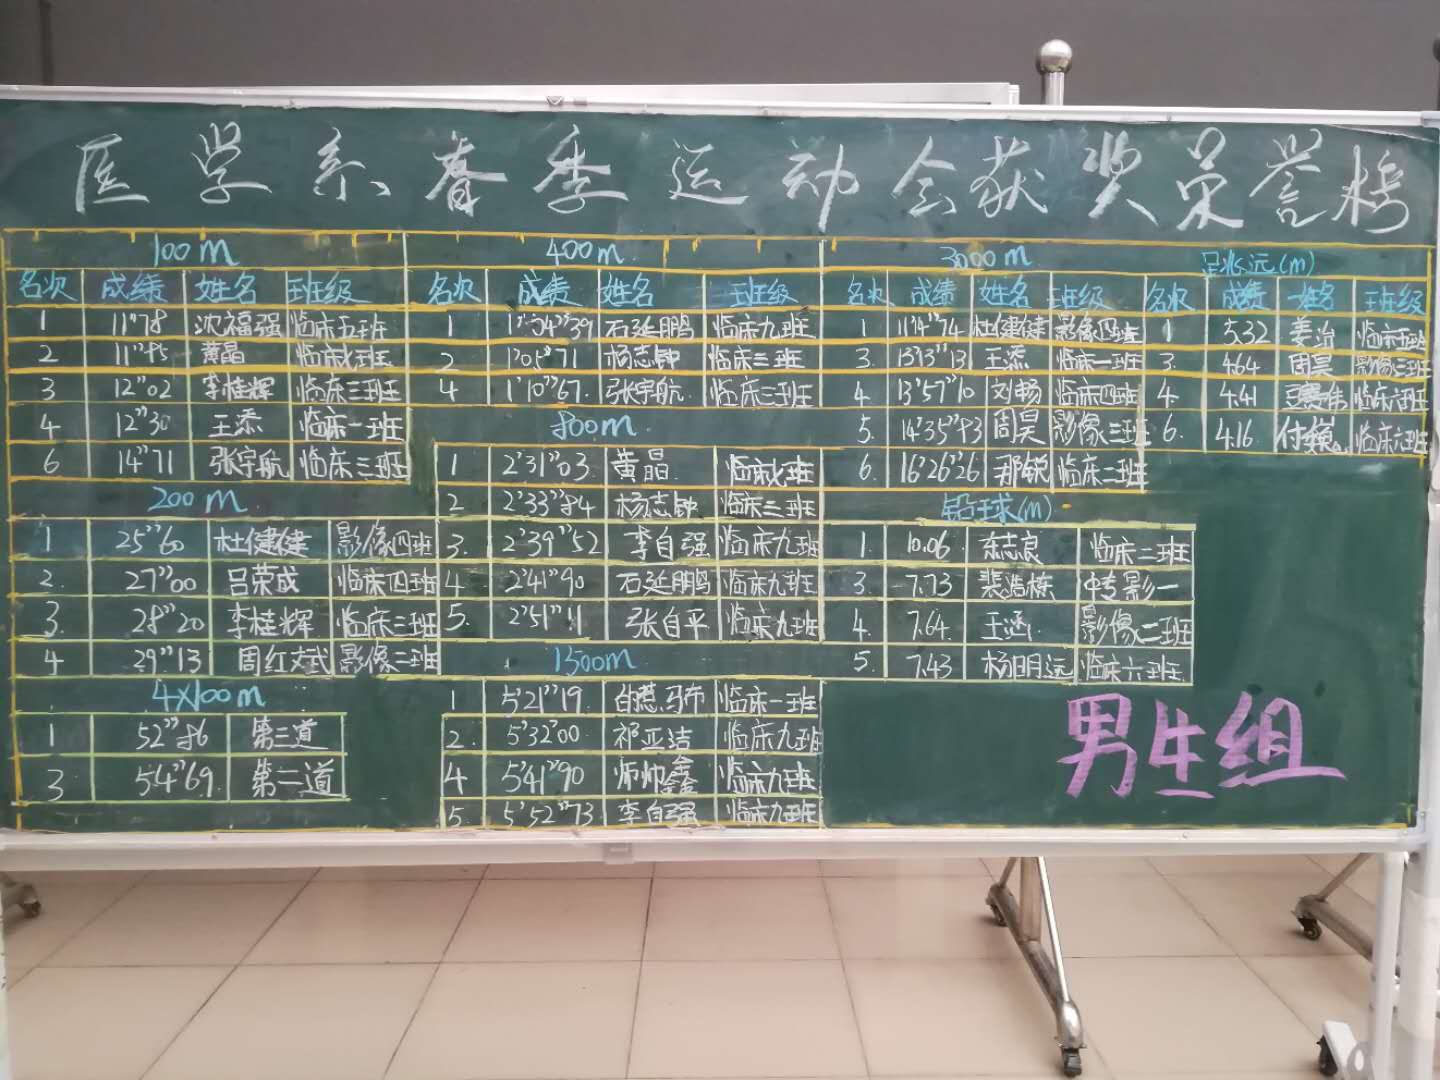 医学系春季运动会获奖荣誉榜
100m
名次 成绩 姓名 班级
1 11"78 沈福强 临床五班
2 11"85 黄晶 临床七班
3 12"02 李桂辉 临床三班
4 12"30 王添 临床一班
6 14"71 张宇航 临床三班
200m
1 25"60 杜健健 影像四班
2. 27"00 吕荣成 临床四班
3. 28"20 李桂辉 临床三班
4 29"13 周红斌 影像二班
4×100m
1 52"86 第三道
3 54"69 第二道
400m
名次 成绩 姓名 班级
1 1'04"39 石延鹏 临床九班
2 1'05"71 杨志钟 临床三班
4 1'10"67 张宇航 临床三班
800m
1 2'31"03 黄晶 临床七班
2 2'33"84 杨志钟 临床三班
3. 2'39"52 李自强 临床九班
4 2'41"90 石延鹏 临床九班
5. 2'51"11 张自平 临床九班
1500m
1 5'21"19 白惹马布 临床一班
2. 5'32"00 祁亚洁 临床九班
4 5'41"90 师帅鑫 临床九班
5. 5'52"73 李自强 临床九班
3000m
名次 成绩 姓名 班级
1 11'4"74 杜健健 影像四班
3. 13'13"13 王添 临床一班
4 13'57"10 刘畅 临床四班
5. 14'35"83 周昊 影像三班
6. 16'26"26 那锐 临床二班
铅球(m)
1. 10.06 东志良 临床二班
3. 7.73 裴浩栋 中专影一
4. 7.64 王涵 影像二班
5. 7.43 杨明远 临床六班
足兆远(m)
名次 成绩 姓名 班级
1 5.32 姜治 临床五班
3. 4.64 周昊 影像三班
4. 4.41 临床六班
6. 4.16 临床六班
男生组